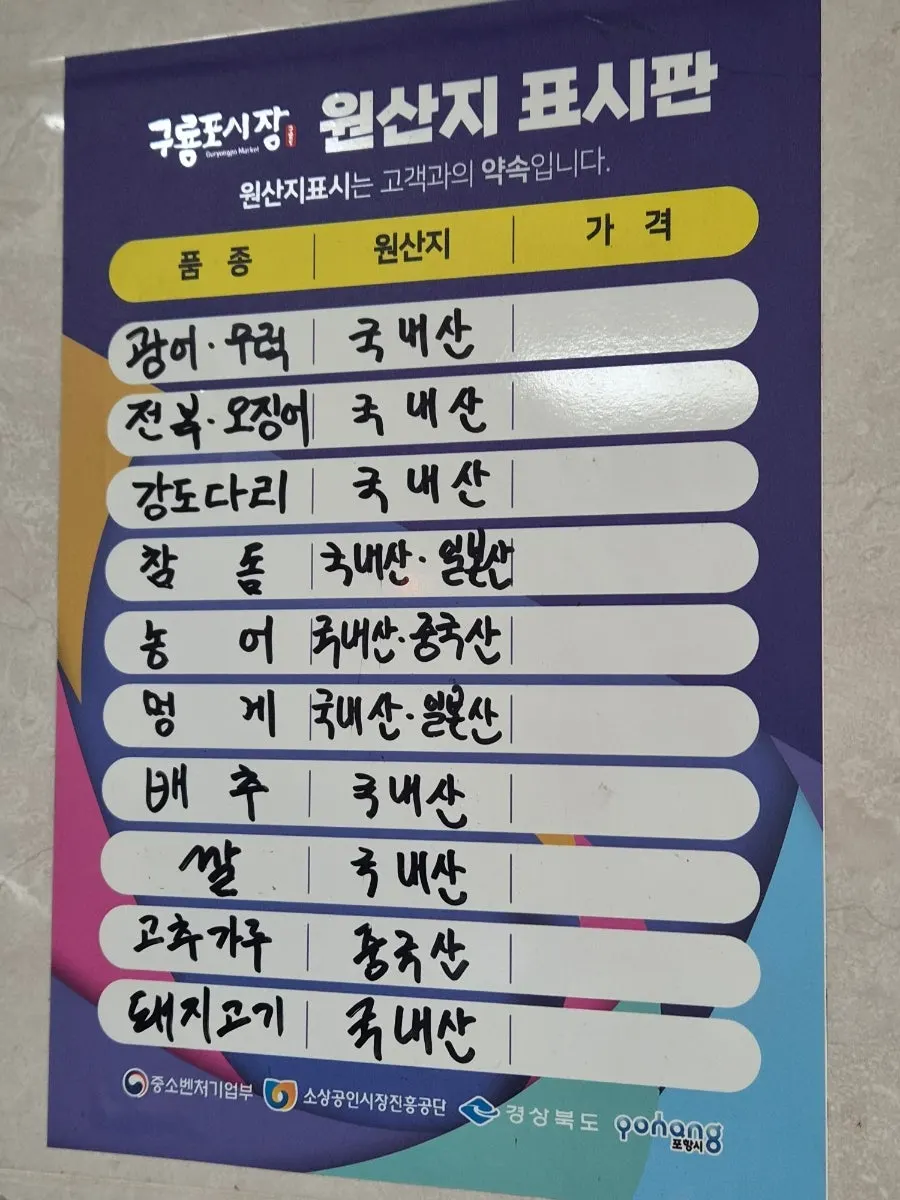 구룡포시장 원산지 표시판
Guryongpo Market
원산지표시는 고객과의 약속입니다.
품종 원산지 가격
광어·우럭 국내산
전복·오징어 국내산
강도다리 국내산
참돔 국내산·일본산
농어 국내산·중국산
멍게 국내산·일본산
배추 국내산
쌀 국내산
고추가루 중국산
돼지고기 국내산
중소벤처기업부 소상공인시장진흥공단 경상북도 pohang
포항시